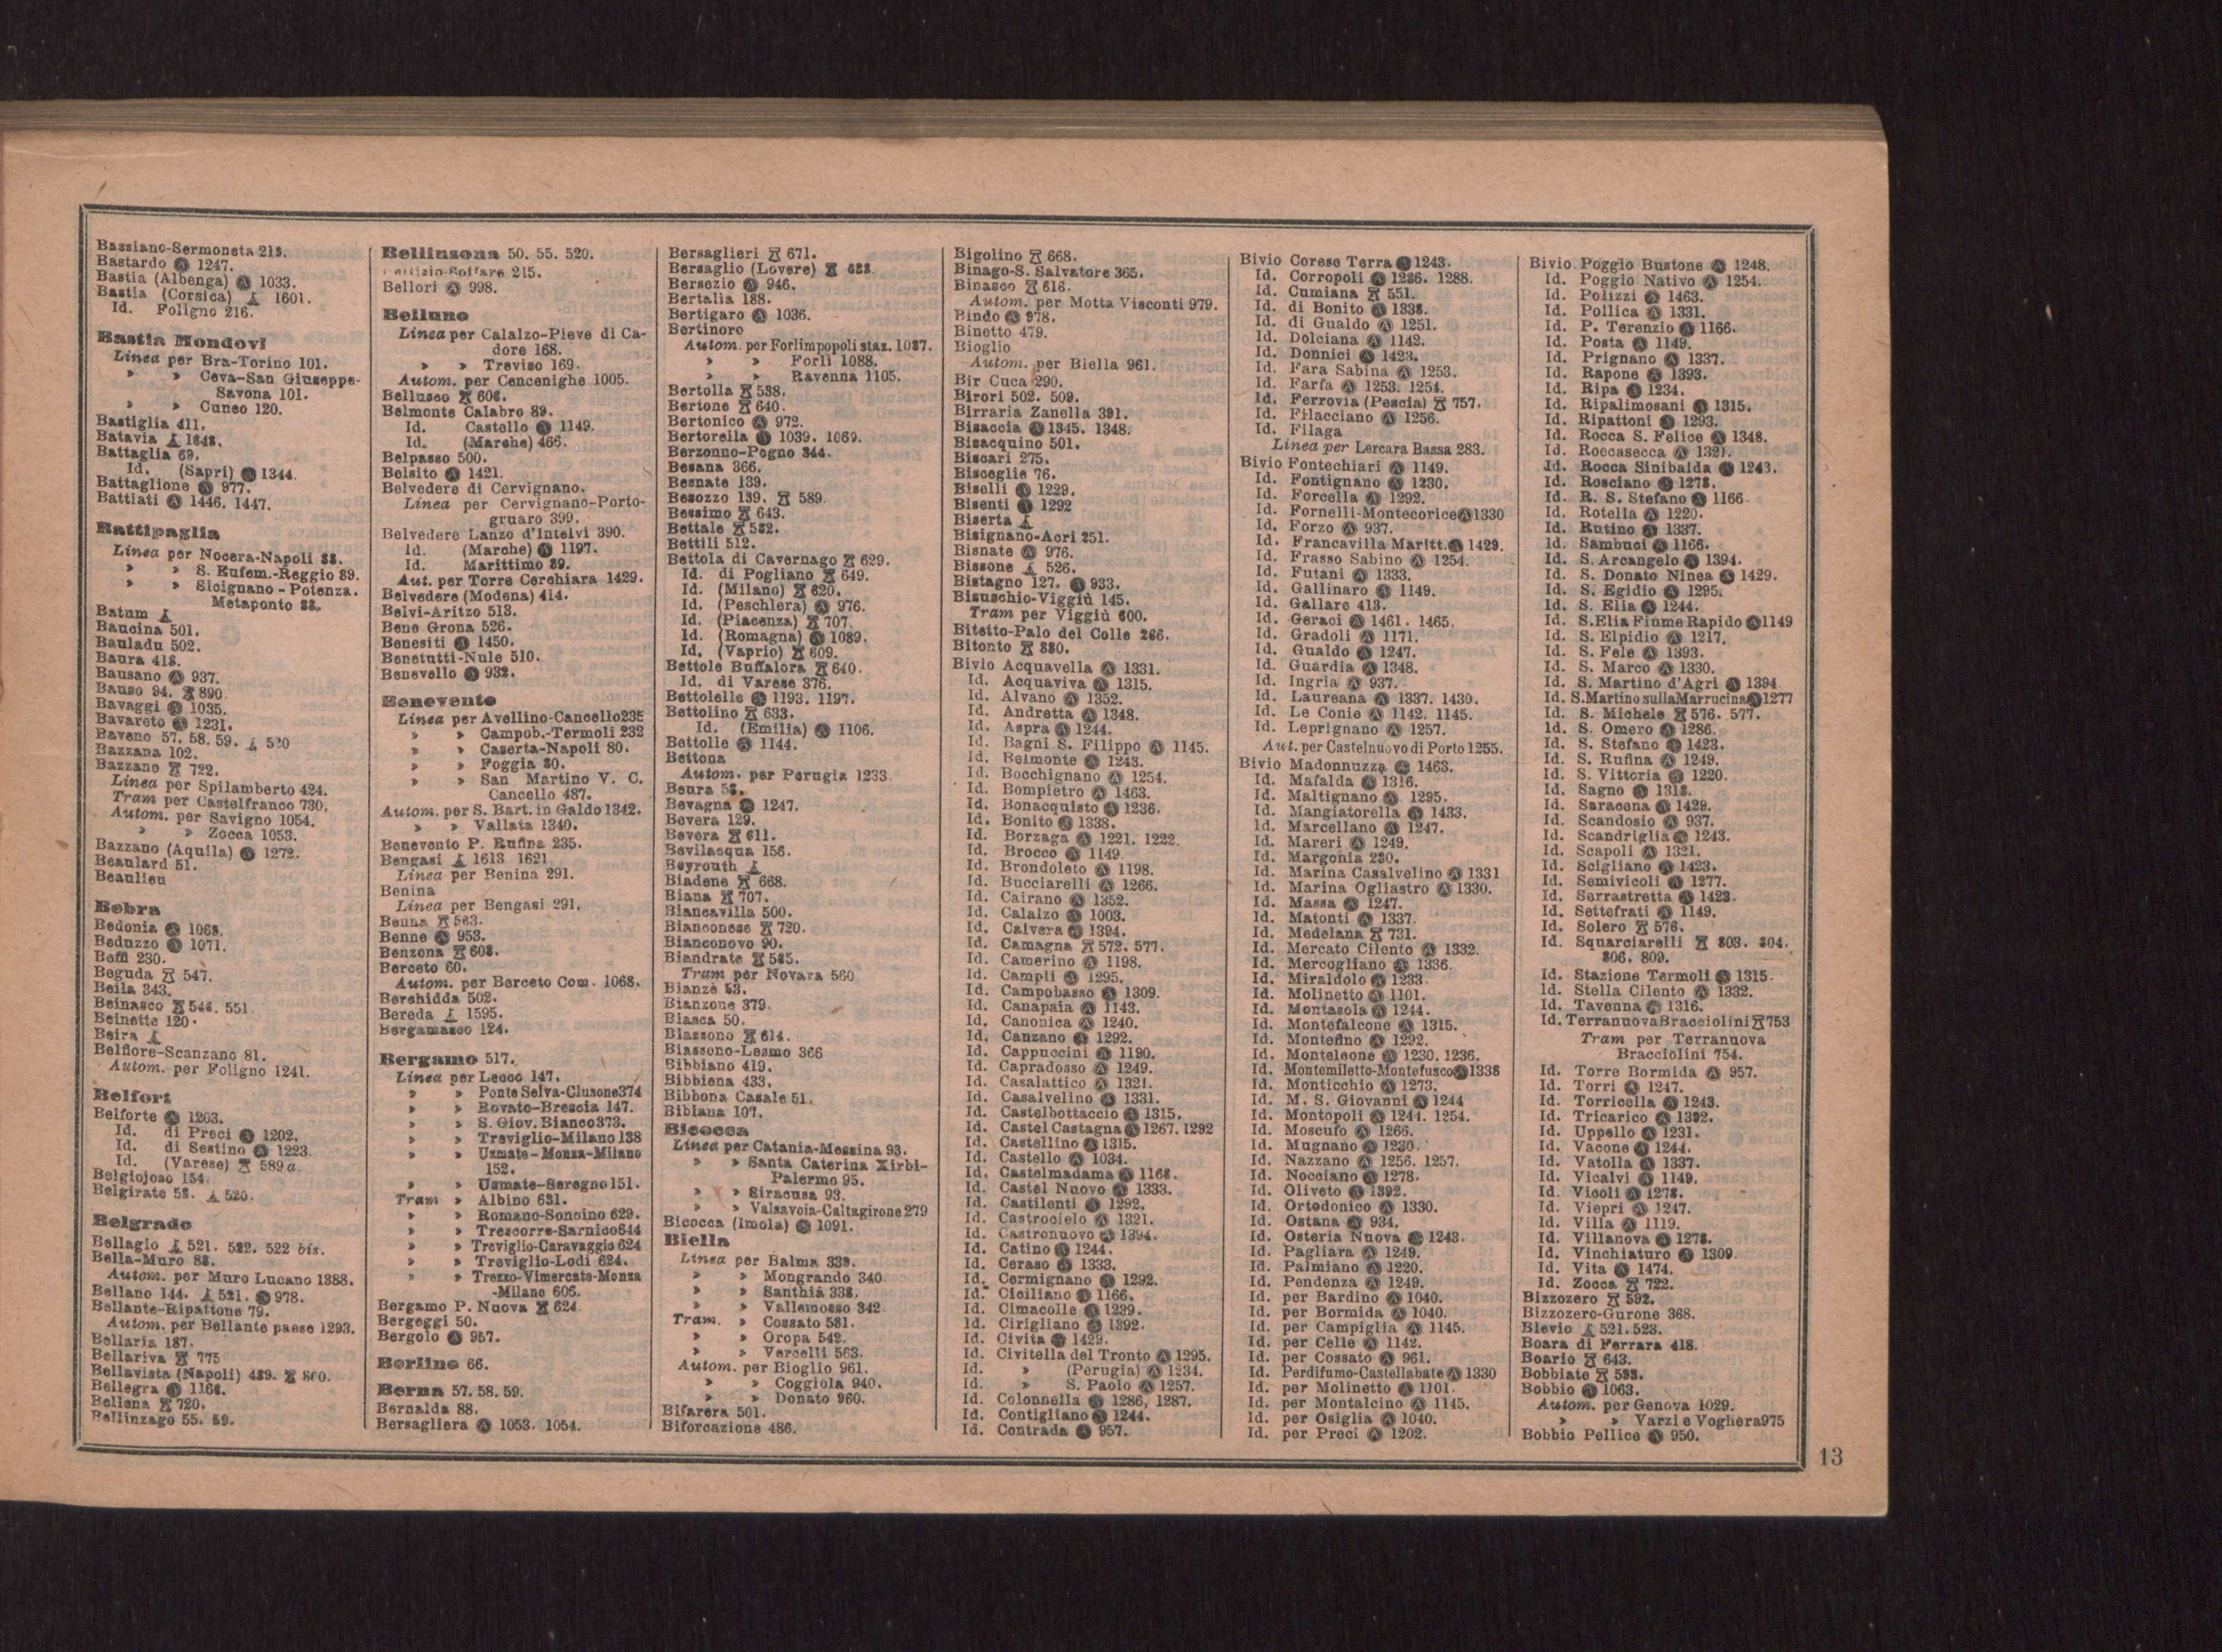 Bassiano-Sermoneta 213.
Bastardo Ⓐ 1247.
Bastia (Albenga) Ⓐ 1033.
Bastia (Corsica) 1601.
Id. Foligno 216.
Bastia Mondovì
Linea per Bra-Torino 101.
» » Ceva-San Giuseppe-
Savona 101.
» » Cuneo 120.
Bastiglia 411.
Batavia 1648.
Battaglia 69.
Id. (Sapri) Ⓐ 1344.
Battaglione Ⓐ 977.
Battiati Ⓐ 1446. 1447.
Battipaglia
Linea per Nocera-Napoli 88.
» » S. Eufem.-Reggio 89.
» » Sicignano - Potenza.
Metaponto 88.
Batum
Baucina 501.
Bauladu 502.
Baura 418.
Bausano Ⓐ 937.
Bauso 94. 890.
Bavaggi Ⓐ 1035.
Bavareto Ⓐ 1231.
Baveno 57. 58. 59. 520
Bazzana 102.
Bazzano 722.
Linea per Spilamberto 424.
Tram per Castelfranco 730.
Autom. per Savigno 1054.
» » Zocca 1053.
Bazzano (Aquila) Ⓐ 1272.
Beaulard 51.
Beaulieu
Bebra
Bedonia Ⓐ 1068.
Beduzzo Ⓐ 1071.
Beffi 230.
Beguda 547.
Beila 343.
Beinasco 548. 551.
Beinette 120.
Beira
Belfiore-Scanzano 81.
Autom. per Foligno 1241.
Belfort
Belforte Ⓐ 1203.
Id. di Preci Ⓐ 1202.
Id. di Sestino Ⓐ 1223.
Id. (Varese) 589 a.
Belgiojoso 154.
Belgirate 58. 520.
Belgrado
Bellagio 521. 522. 522 bis.
Bella-Muro 88.
Autom. per Muro Lucano 1388.
Bellano 144. 521. Ⓐ 978.
Bellante-Ripattone 79.
Autom. per Bellante paese 1293.
Bellaria 187.
Bellariva 775
Bellavista (Napoli) 489. 860.
Bellegra Ⓐ 1168.
Bellena 720.
Bellinzago 55. 59.
Bellinzona 50. 55. 520.
Solfare 215.
Bellori Ⓐ 998.
Belluno
Linea per Calalzo-Pieve di Ca-
dore 168.
» » Treviso 169.
Autom. per Cencenighe 1005.
Bellusco 608.
Belmonte Calabro 89.
Id. Castello Ⓐ 1149.
Id. (Marche) 466.
Belpasso 500.
Belsito Ⓐ 1421.
Belvedere di Cervignano.
Linea per Cervignano-Porto-
gruaro 399.
Belvedere Lanzo d'Intelvi 390.
Id. (Marche) Ⓐ 1197.
Id. Marittimo 89.
Aut. per Torre Cerchiara 1429.
Belvedere (Modena) 414.
Belvi-Aritzo 513.
Bene Grona 526.
Benesiti Ⓐ 1450.
Benetutti-Nule 510.
Benevello Ⓐ 932.
Benevento
Linea per Avellino-Cancello 235
» » Campob.-Termoli 232
» » Caserta-Napoli 80.
» » Foggia 80.
» » San Martino V. C.
Cancello 487.
Autom. per S. Bart. in Galdo 1342.
» » Vallata 1340.
Benevento P. Rufina 235.
Bengasi 1613 1621
Linea per Benina 291.
Benina
Linea per Bengasi 291.
Benna 563.
Benne Ⓐ 953.
Benzona 608.
Berceto 60.
Autom. per Berceto Com. 1068.
Berchidda 502.
Bereda 1595.
Bergamasco 124.
Bergamo 517.
Linea per Lecco 147.
» » Ponte Selva-Clusone 374
» » Rovato-Brescia 147.
» » S. Giov. Bianco 373.
» » Treviglio-Milano 138
» » Usmate-Monza-Milano
152.
» » Usmate-Seregno 151.
Tram » Albino 631.
» » Romano-Soncino 629.
» » Trescorre-Sarnico 644
» » Treviglio-Caravaggio 624
» » Treviglio-Lodi 624.
» » Trezzo-Vimercate-Monza
-Milano 606.
Bergamo P. Nuova 624
Bergeggi 50.
Bergolo Ⓐ 957.
Berlino 66.
Berna 57. 58. 59.
Bernalda 88.
Bersagliera Ⓐ 1053. 1054.
Bersaglieri 671.
Bersaglio (Lovere)
Bersezio Ⓐ 946.
Bertalia 188.
Bertigaro Ⓐ 1036.
Bertinoro
Autom. per Forlimpopoli staz. 1087.
» » Forlì 1088.
» » Ravenna 1105.
Bertolla 538.
Bertone 640.
Bertonico Ⓐ 972.
Bertorella Ⓐ 1039. 1069.
Berzonno-Pogno 344.
Besana 366.
Besnate 139.
Besozzo 139. 589.
Bessimo 643.
Bettale 582.
Bettili 512.
Bettola di Cavernago 629.
Id. di Pogliano 649.
Id. (Milano) 620.
Id. (Peschiera) Ⓐ 976.
Id. (Piacenza) 707.
Id. (Romagna) Ⓐ 1089.
Id. (Vaprio) 609.
Bettole Buffalora 640.
Id. di Varese 376.
Bettolelle Ⓐ 1193. 1197.
Bettolino 633.
Id. (Emilia) Ⓐ 1106.
Bettolle Ⓐ 1144.
Bettona
Autom. per Perugia 1233.
Beura 58.
Bevagna Ⓐ 1247.
Bevera 129.
Bevera 611.
Bevilacqua 156.
Beyrouth
Biadene 668.
Biana 707.
Biancavilla 500.
Bianconese 720.
Bianconovo 90.
Biandrate 585.
Tram per Novara 560
Bianzè 53.
Bianzone 379.
Biasca 50.
Biassono 614.
Biassono-Lesmo 366
Bibbiano 419.
Bibbiena 433.
Bibbona Casale 51.
Bibiana 107.
Bicocca
Linea per Catania-Messina 93.
» » Santa Caterina Xirbi-
Palermo 95.
» » Siracusa 93.
» » Valsavoia-Caltagirone 279
Bicocca (Imola) Ⓐ 1091.
Biella
Linea per Balma 339.
» » Mongrando 340
» » Santhià 338.
» » Vallemosso 342
Tram. » Cossato 581.
» » Oropa 542.
» » Vercelli 563.
Autom. per Bioglio 961.
» » Coggiola 940.
» » Donato 960.
Bifarera 501.
Biforcazione 486.
Bigolino 668.
Binago-S. Salvatore 365.
Binasco 616.
Autom. per Motta Visconti 979.
Bindo Ⓐ 978.
Binetto 479.
Bioglio
Autom. per Biella 961.
Bir Cuca 290.
Birori 502. 509.
Birraria Zanella 391.
Bisaccia Ⓐ 1345. 1348.
Bisacquino 501.
Biscari 275.
Bisceglie 76.
Biselli Ⓐ 1229.
Bisenti Ⓐ 1292
Biserta
Bisignano-Acri 251.
Bisnate Ⓐ 976.
Bissone 526.
Bistagno 127. Ⓐ 933.
Bisuschio-Viggiù 145.
Tram per Viggiù 600.
Bitetto-Palo del Colle 266.
Bitonto 880.
Bivio Acquavella Ⓐ 1331.
Id. Acquaviva Ⓐ 1315.
Id. Alvano Ⓐ 1352.
Id. Andretta Ⓐ 1348.
Id. Aspra Ⓐ 1244.
Id. Bagni S. Filippo Ⓐ 1145.
Id. Belmonte Ⓐ 1243.
Id. Bocchignano Ⓐ 1254.
Id. Bompietro Ⓐ 1463.
Id. Bonacquisto Ⓐ 1236.
Id. Bonito Ⓐ 1338.
Id. Borzaga Ⓐ 1221. 1222.
Id. Brocco Ⓐ 1149.
Id. Brondoleto Ⓐ 1198.
Id. Bucciarelli Ⓐ 1266.
Id. Cairano Ⓐ 1352.
Id. Calalzo Ⓐ 1003.
Id. Calvera Ⓐ 1394.
Id. Camagna 572. 577.
Id. Camerino Ⓐ 1198.
Id. Campli Ⓐ 1295.
Id. Campobasso Ⓐ 1309.
Id. Canapaia Ⓐ 1143.
Id. Canonica Ⓐ 1240.
Id. Canzano Ⓐ 1292.
Id. Cappuccini Ⓐ 1190.
Id. Capradosso Ⓐ 1249.
Id. Casalattico Ⓐ 1321.
Id. Casalvelino Ⓐ 1331.
Id. Castelbottaccio Ⓐ 1315.
Id. Castel Castagna Ⓐ 1267. 1292
Id. Castellino Ⓐ 1315.
Id. Castello Ⓐ 1034.
Id. Castelmadama Ⓐ 1168.
Id. Castel Nuovo Ⓐ 1333.
Id. Castilenti Ⓐ 1292.
Id. Castrocielo Ⓐ 1321.
Id. Castronuovo Ⓐ 1394.
Id. Catino Ⓐ 1244.
Id. Ceraso Ⓐ 1333.
Id. Cermignano Ⓐ 1292.
Id. Ciciliano Ⓐ 1166.
Id. Cimacolle Ⓐ 1239.
Id. Cirigliano Ⓐ 1392.
Id. Civita Ⓐ 1429.
Id. Civitella del Tronto Ⓐ 1295.
Id. » (Perugia) Ⓐ 1234.
Id. » S. Paolo Ⓐ 1257.
Id. Colonnella Ⓐ 1286, 1287.
Id. Contigliano Ⓐ 1244.
Id. Contrada Ⓐ 957.
Bivio Corese Terra Ⓐ 1243.
Id. Corropoli Ⓐ 1286. 1288.
Id. Cumiana 551.
Id. di Bonito Ⓐ 1338.
Id. di Gualdo Ⓐ 1251.
Id. Dolciana Ⓐ 1142.
Id. Donnici Ⓐ 1423.
Id. Fara Sabina Ⓐ 1253.
Id. Farfa Ⓐ 1253. 1254.
Id. Ferrovia (Pescia) 757.
Id. Filacciano Ⓐ 1256.
Id. Filaga
Linea per Lercara Bassa 283.
Bivio Fontechiari Ⓐ 1149.
Id. Fontignano Ⓐ 1230.
Id. Forcella Ⓐ 1292.
Id. Fornelli-Montecorice Ⓐ 1330
Id. Forzo Ⓐ 937.
Id. Francavilla Maritt. Ⓐ 1429.
Id. Frasso Sabino Ⓐ 1254.
Id. Futani Ⓐ 1333.
Id. Gallinaro Ⓐ 1149.
Id. Gallare 413.
Id. Geraci Ⓐ 1461. 1465.
Id. Gradoli Ⓐ 1171.
Id. Gualdo Ⓐ 1247.
Id. Guardia Ⓐ 1348.
Id. Ingria Ⓐ 937.
Id. Laureana Ⓐ 1337. 1430.
Id. Le Conie Ⓐ 1142. 1145.
Id. Leprignano Ⓐ 1257.
Aut. per Castelnuovo di Porto 1255.
Bivio Madonnuzza Ⓐ 1463.
Id. Mafalda Ⓐ 1316.
Id. Maltignano Ⓐ 1295.
Id. Mangiatorella Ⓐ 1433.
Id. Marcellano Ⓐ 1247.
Id. Mareri Ⓐ 1249.
Id. Margonia 230.
Id. Marina Casalvelino Ⓐ 1331
Id. Marina Ogliastro Ⓐ 1330.
Id. Massa Ⓐ 1247.
Id. Matonti Ⓐ 1337.
Id. Medelana 731.
Id. Mercato Cilento Ⓐ 1332.
Id. Mercogliano Ⓐ 1336.
Id. Miraldolo Ⓐ 1233.
Id. Molinetto Ⓐ 1101.
Id. Montasola Ⓐ 1244.
Id. Montefalcone Ⓐ 1315.
Id. Montefino Ⓐ 1292.
Id. Monteleone Ⓐ 1230. 1236.
Id. Montemiletto-Montefusco Ⓐ 1338
Id. Monticchio Ⓐ 1273.
Id. M. S. Giovanni Ⓐ 1244
Id. Montopoli Ⓐ 1244. 1254.
Id. Moscufo Ⓐ 1266.
Id. Mugnano Ⓐ 1230.
Id. Nazzano Ⓐ 1256. 1257.
Id. Nocciano Ⓐ 1278.
Id. Oliveto Ⓐ 1392.
Id. Ortodonico Ⓐ 1330.
Id. Ostana Ⓐ 934.
Id. Osteria Nuova Ⓐ 1243.
Id. Pagliara Ⓐ 1249.
Id. Palmiano Ⓐ 1220.
Id. Pendenza Ⓐ 1249.
Id. per Bardino Ⓐ 1040.
Id. per Bormida Ⓐ 1040.
Id. per Campiglia Ⓐ 1145.
Id. per Celle Ⓐ 1142.
Id. per Cossato Ⓐ 961.
Id. Perdifumo-Castellabate Ⓐ 1330
Id. per Molinetto Ⓐ 1101
Id. per Montalcino Ⓐ 1145.
Id. per Osiglia Ⓐ 1040.
Id. per Preci Ⓐ 1202.
Bivio Poggio Bustone Ⓐ 1248.
Id. Poggio Nativo Ⓐ 1254.
Id. Polizzi Ⓐ 1463.
Id. Pollica Ⓐ 1331.
Id. P. Terenzio Ⓐ 1166.
Id. Posta Ⓐ 1149.
Id. Prignano Ⓐ 1337.
Id. Rapone Ⓐ 1393.
Id. Ripa Ⓐ 1234.
Id. Ripalimosani Ⓐ 1315.
Id. Ripattoni Ⓐ 1293.
Id. Rocca S. Felice Ⓐ 1348.
Id. Roccasecca Ⓐ 1321.
Id. Rocca Sinibalda Ⓐ 1243.
Id. Rosciano Ⓐ 1278.
Id. R. S. Stefano Ⓐ 1166
Id. Rotella Ⓐ 1220.
Id. Rutino Ⓐ 1337.
Id. Sambuci Ⓐ 1166.
Id. S. Arcangelo Ⓐ 1394.
Id. S. Donato Ninea Ⓐ 1429.
Id. S. Egidio Ⓐ 1295.
Id. S. Elia Ⓐ 1244.
Id. S. Elia Fiume Rapido Ⓐ 1149
Id. S. Elpidio Ⓐ 1217.
Id. S. Fele Ⓐ 1393.
Id. S. Marco Ⓐ 1330.
Id. S. Martino d'Agri Ⓐ 1394
Id. S. Martino sulla Marrucina Ⓐ 1277
Id. S. Michele 576. 577.
Id. S. Omero Ⓐ 1286.
Id. S. Stefano Ⓐ 1423.
Id. S. Rufina Ⓐ 1249.
Id. S. Vittoria Ⓐ 1220.
Id. Sagno Ⓐ 1318.
Id. Saracena Ⓐ 1429.
Id. Scandosio Ⓐ 937.
Id. Scandriglia Ⓐ 1243.
Id. Scapoli Ⓐ 1321.
Id. Scigliano Ⓐ 1423.
Id. Semivicoli Ⓐ 1277.
Id. Serrastretta Ⓐ 1423.
Id. Settefrati Ⓐ 1149.
Id. Solero 576.
Id. Squarciarelli 803. 804.
806. 809.
Id. Stazione Termoli Ⓐ 1315.
Id. Stella Cilento Ⓐ 1332.
Id. Tavenna Ⓐ 1316.
Id. Terranuova Bracciolini 753
Tram per Terranuova
Bracciolini 754.
Id. Torre Bormida Ⓐ 957.
Id. Torri Ⓐ 1247.
Id. Torricella Ⓐ 1243.
Id. Tricarico Ⓐ 1392.
Id. Uppello Ⓐ 1231.
Id. Vacone Ⓐ 1244.
Id. Vatolla Ⓐ 1337.
Id. Vicalvi Ⓐ 1149.
Id. Vicoli Ⓐ 1278.
Id. Viepri Ⓐ 1247.
Id. Villa Ⓐ 1119.
Id. Villanova Ⓐ 1278.
Id. Vinchiaturo Ⓐ 1309.
Id. Vita Ⓐ 1474.
Id. Zocca 722.
Bizzozero 592.
Bizzozero-Gurone 368.
Blevio 521. 523.
Boara di Ferrara 418.
Boario 643.
Bobbiate 593.
Bobbio Ⓐ 1063.
Autom. per Genova 1029.
» » Varzi e Voghera 975
Bobbio Pellice Ⓐ 950.
13